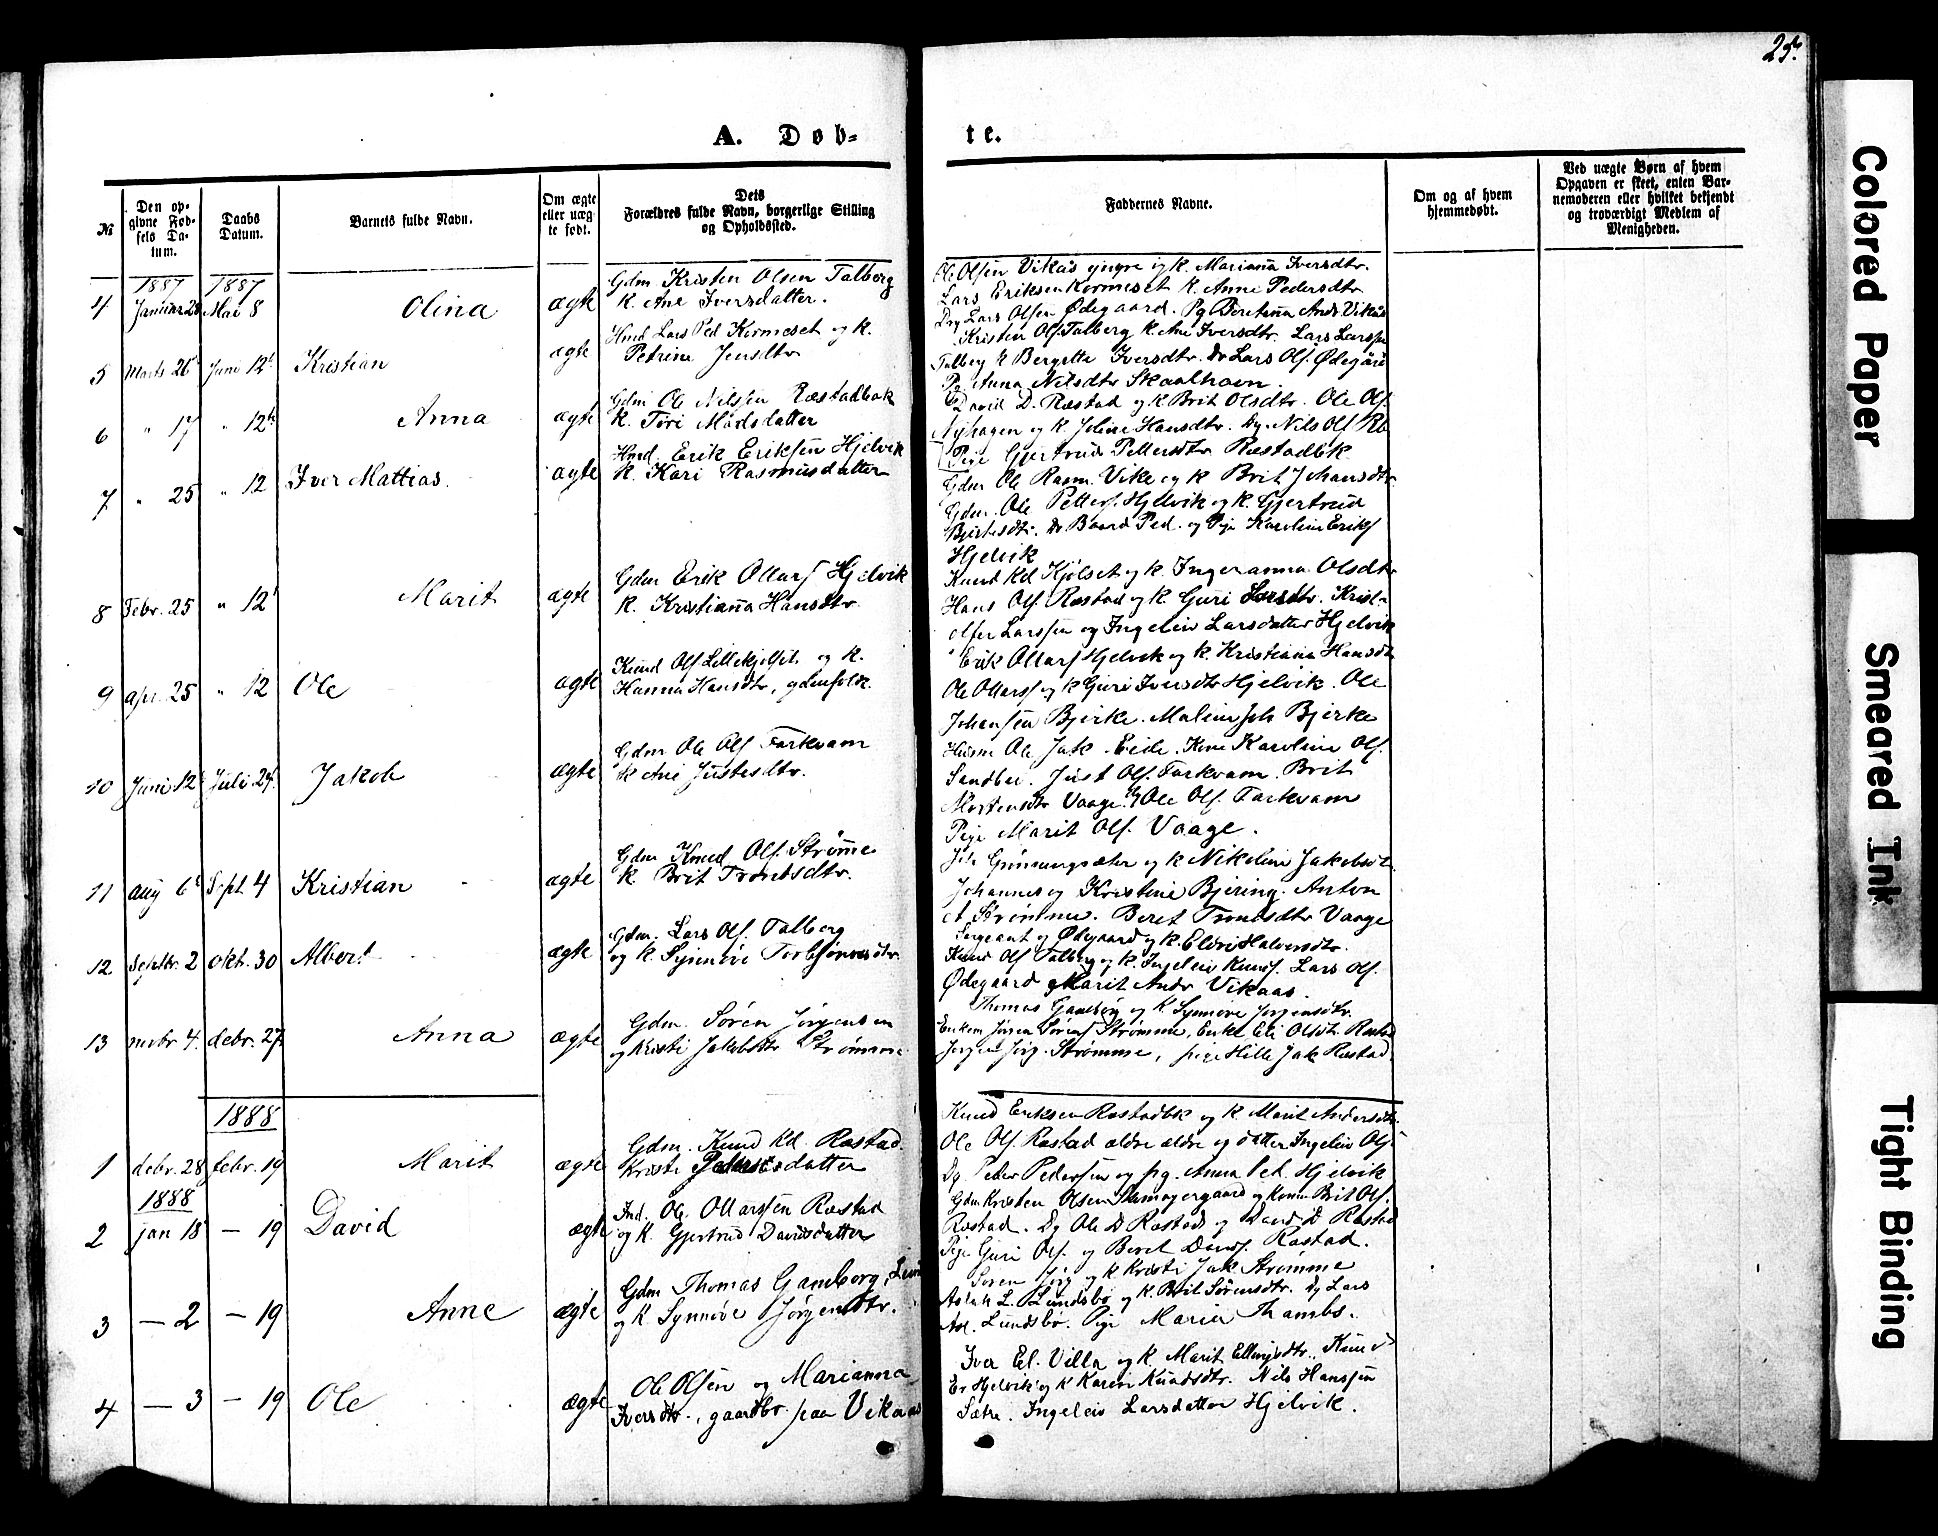 25.
A. Døb-
te.
№
Den op-
givne Fød-
sels Da-
tum.
Daabs
Datum.
Barnets fulde Navn.
Om ægte
eller uæg-
te født.
Dets
Forældres fulde Navn, borgerlige Stilling
og Opholdssted.
Faddernes Navne.
Om og af hvem
hjemmedøbt.
Ved uægte Børn af hvem
Opgaven er skeet, enten Bar-
nemoderen eller hvilket betjendt
og troværdigt Medlem af
Menigheden.
1887 1887
4 Januar 28 Mai 8 Olina ægte
Gdm Kristen Olsen Talberg
k. Ane Iversdatter.
Ole Olsen Vikås yngre og k. Marianna Iversdtr.
Lars Eriksen Kormeset k. Anne Pedersdtr
Dg Lars Olsen Ødegaard. Pg Beretanna Ands Vikås
5 Marts 26 Juni 12 Kristian ægte
Hmd Lars Ped Kormeset og k.
Petrine Jensdtr
Kristen Ols Talberg k. Ane Iversdtr. Lars Larssen
Talberg k Bergitte Iversdtr. Dr Lars Ols. Ødegård
Pg Anna Nilsdtr Skaalhavn.
6 " 17 " 12 Anna ægte
Gdm Ole Nilsen Ræstadbak
k. Tori Madsdatter
David D. Ræstad og k Brit Olsdtr. Ole Ols.
Nyhagen og k. Joline Hansdtr. Dg. Nils Ols Rb
Pige Gjertrud Pettersdtr Ræstadbk
7 " 25 " 12 Iver Mattias. ægte
Hmd. Erik Eriksen Hjelvik
k. Kari Rasmusdatter
Gdm Ole Rasm. Vike og k Brit Johansdtr
Gdm. Ole Petters. Hjelvik og k. Gjertrud
Dr Baard Ped. og Pige Karoline Eriks
Hjelvik
8 Febr. 25 " 12 Marit ægte
Gdm Erik Ottars Hjelvik
k. Kristianna Hansdtr.
Knud Kd Kjølset og k. Ingeranna Olsdtr
Hans Ols. Ræstad og k. Guri Larsdtr. Krist-
offer Larssen og Ingeleiv Larsdatter Hjelvik
9 apr. 25 " 12 Ole ægte
Knud Ols Lillekjelset og k.
Hanna Hansdtr, gdmfolk.
Erik Ottars Hjelvik og k. Kristianna Hansdt
Ole Ottars og k Guri Iversdtr Hjelvik. Ole
Johansen Bjerke. Malin Joh Bjerke
10 Juni 12 Juli 24 Jakob ægte
Gdm Ole Ols Farkvam
k Ane Justesdtr.
Husm Ole Jak. Eide. Kone Karoline Ols.
Sandbu. Just Ols. Farkvam. Brit
Mortensdtr Vaage. Dg Ole Ols. Farkvam
Pige Marit Ols. Vaage.
11 aug 6 Sept. 4 Kristian ægte
Gdm Knud Ols. Strømme
k. Brit Trondsdtr.
og k Nikoline Jakobsdt.
Johannes og Kristine Bjering. Anton
Strømme. Beret Trondsdtr Vaage
12 Septbr. 2 okt. 30 Albert ægte
Gdm. Lars Ols. Talberg
og k. Synnøve Torbjørnsdtr.
Sergeant Ødegaard og k. Eldri Halvorsdtr.
Knud Ols Talberg og k. Ingeleiv Knuds. Lars Ols.
Ødegaard og Marit Andr Vikaas.
13 novbr 4. debr. 27 Anna ægte
Gdm. Søren Jørgensen
og Kristi Jakobsdtr Strømme
Thomas Gamborg og k Synnøve Jørgensdtr.
Enkem Jørgen Sørens Strømme, Enke Eli Olsdt. Ræstad
Jørgen Jørg. Strømme, pige Hille Jak Ræstad
1888
1 debr. 28 febr. 19 Marit ægte
Gdm. Knud Kd. Ræstad
Kristi Pedersdatter
Knud Eriksen Ræstadbk og k. Marit Andersdtr
Ole Ols. Ræstad ældre ældre og datter Ingeleiv Ols
Dg. Peder Pedersen og pg. Anna Ped. Hjelvik
1888
2 jan 18 — 19 David ægte
Ind. Ole Ottarssen Ræstad
og k. Gjertrud Davidsdatter
Gdm Kristen Olsen og kone Brit Ols.
Ræstad. Dg Ole D Ræstad og David D Ræstad
Pige Guri Ols. og Beret Davs. Ræstad.
3 — 2 — 19 Anne ægte
Gdm Thomas Gamborg,
og k Synnøve Jørgensdtr.
Søren Jørg og k Kristi Jak Strømme
Aslak L. Lundsbø og k. Brit Sørensdtr. Dg Lars
Asl. Lundsbø. Pige Marie Thambs.
4 — 3 — 19 Ole ægte
Ole Olsen og Marianna
Iversdtr., gaardbr. paa Vikaas
Iver El. Villa og k. Marit Ellingsdtr. Knud
Er Hjelvik og k Karen Knudsdtr. Nils Hanssen
Sætre. Ingeleiv Larsdatter Hjelvik.
Colored Paper
Smeared Ink
Tight Binding